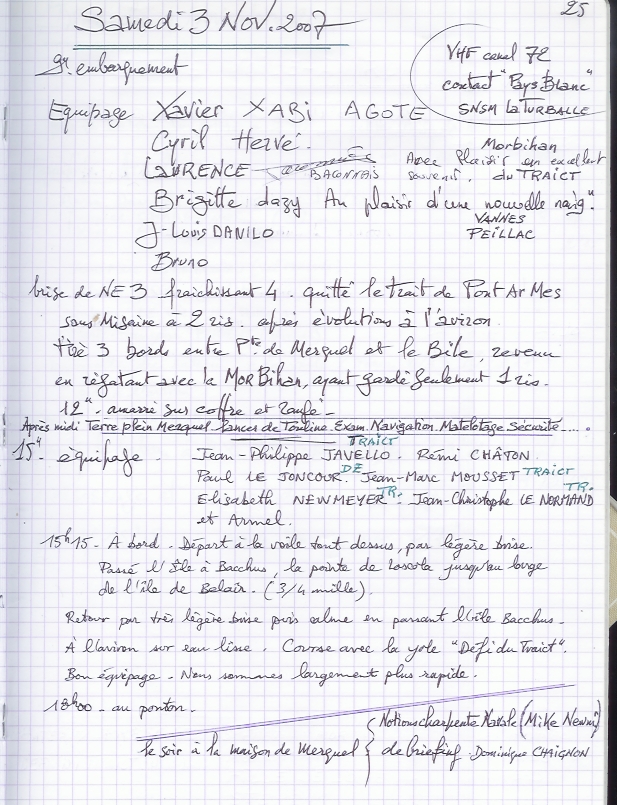 25
Samedi 3 Nov. 2007
9h embarquement
VHF canal 72
contact "Pays Blanc"
SNSM LATURBALLE
Equipage Xavier XABi AGOTE
Cyril Hervé.
LAURENCE BAGONNAIS
Morbihan
Avec plaisir en excellent
souvenir. du TRAICT
Brigitte dazy Au plaisir d'une nouvelle navig°.
VANNES
PEILLAC
J-Louis DANILO
Bruno
brise de NE 3 fraichissant 4. quitté le trait de Pont Ar Mes
sous Misaine à 2 ris. après évolutions à l'aviron
tiré 3 bords entre Pte de Merquel et le Bile, revenu
en régatant avec la MorBihan, ayant gardé seulement 1 ris.
12h. amarré sur coffre et
Après midi Terre plein Merquel. Lances de Touline. Exam. Navigation. Matelotage Sécurité.....
15h équipage. Jean-Philippe JAVELLO. TRAICT Rémi CHÂTON.
Paul LE JONCOUR. DE Jean-Marc MOUSSET TRAICT
Elisabeth NEWMEYER TR. Jean-Christophe LE NORMAND TR.
et Armel.
15h15 - À bord. Départ à la voile tout dessus, par légère brise.
Passé l'Île à Bacchus, la pointe de Loscolo jusqu'au large
de l'île de Belair. (3/4 mille).
Retour par très légère brise puis calme en passant l'île Bacchus.
À l'aviron sur eau lisse. Course avec la yole "Défi du Traict".
Bon équipage. Nous sommes largement plus rapide.
18h00 - au ponton.
le soir à la maison de Merquel { Notions charpente Navale (Mike Newm)
debriefing. Dominique CHAIGNON